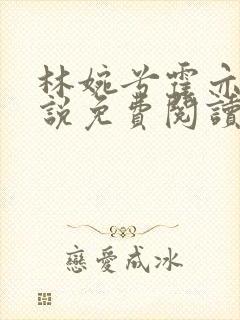 林婉兮霍亦
說免費閱讀
戀愛成冰